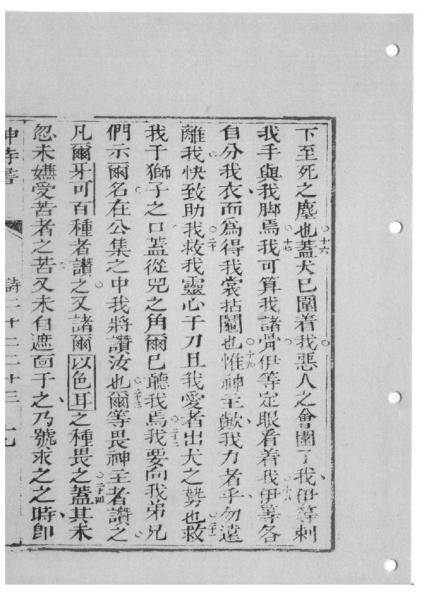 下至死之塵也○十六蓋犬已圍着我惡人之會圍了我伊等刺
我手與我脚焉○十七我可算我諸骨伊等定眼看着我○十八伊等各
自分我衣而爲得我裳拈鬮也○十九惟神主歟我力者乎勿遠
離我快致助我○二十救我靈心于刀且我愛者出犬之勢也○二一救
我于獅子之口蓋從兕之角爾已聽我焉○二二我要向我弟兄
們示爾名在公集之中我將讚汝也○二三爾等畏神主者讚之
凡爾牙可百種者讚之又諸爾以色耳之種畏之○二四蓋其未
忽未嫌愛苦者之苦又未自遮面于之乃號求之之時卽
神詩書 詩二十二二十三